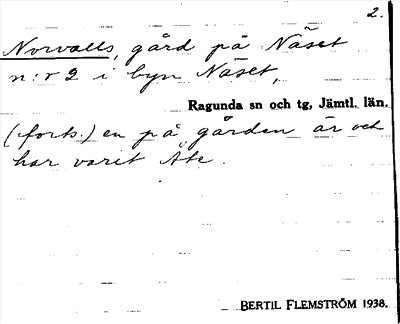 2.
Norvalls, gård på Näset
n:r 2 i byn Näset,
Ragunda sn och tg, Jämtl. län.
(forts.) en på gården är och
har varit Åte.
BERTIL FLEMSTRÖM 1938.